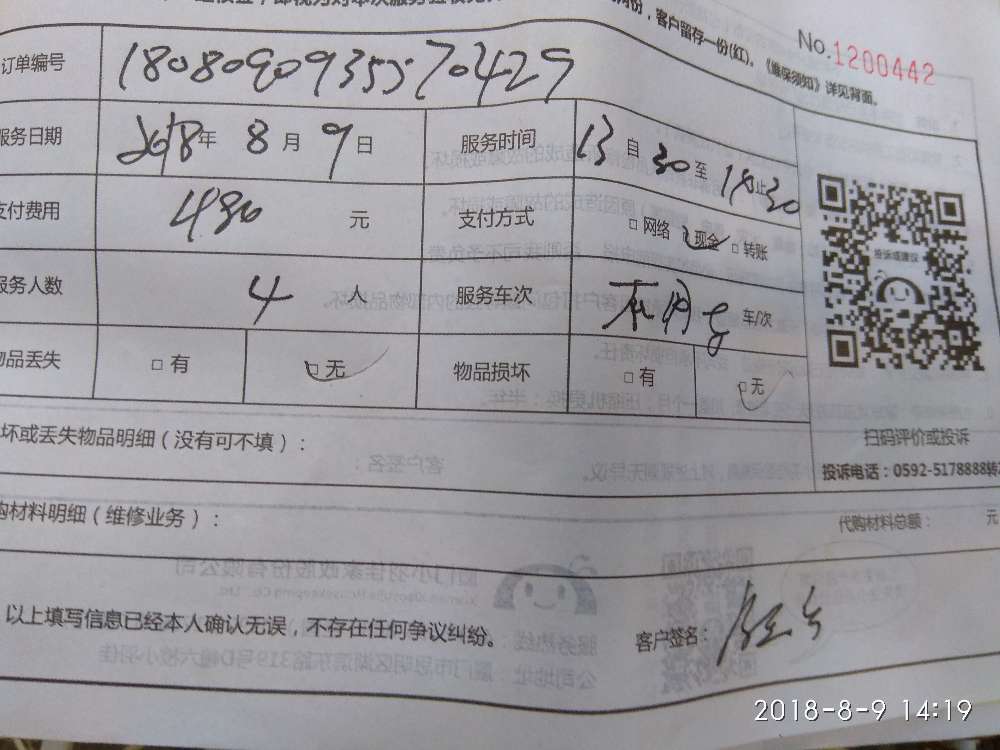 客户留存一份(红)。《维保须知》详见背面。
No.1200442
订单编号 18080909355570429
服务日期 2018年 8月 9日 服务时间 13自30至18止30
支付费用 480 元 支付方式 □网络 □现金 □转账
服务人数 4 人 服务车次 车/次
物品丢失 □有 □无 物品损坏 □有 □无
投诉或建议
坏或丢失物品明细（没有可不填）：
扫码评价或投诉
投诉电话：0592-5178888转
购材料明细（维修业务）：
代购材料总额： 元
以上填写信息已经本人确认无误，不存在任何争议纠纷。
客户签名：
2018-8-9 14:19